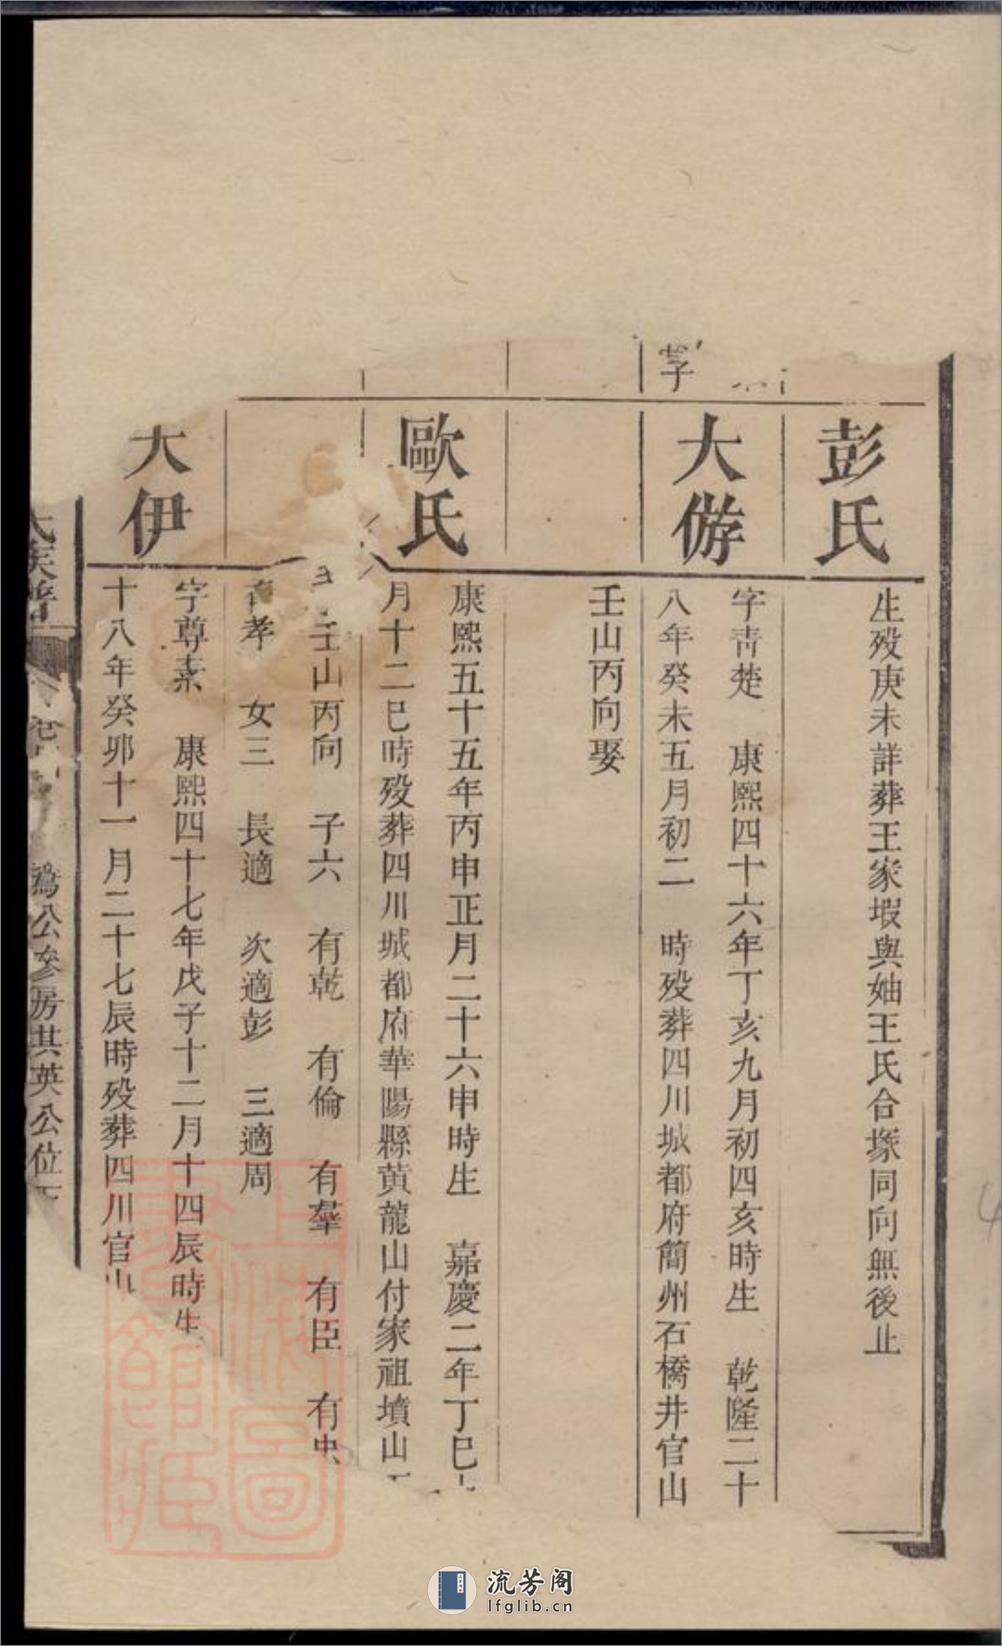 字
彭氏
生歿庚未詳葬王家塅與妯王氏合塚同向無後止
大㳺
字青楚 康熙四十六年丁亥九月初四亥時生 乾隆二十
八年癸未五月初二 時歿葬四川城都府簡州石橋井官山
壬山丙向娶
歐氏
康熙五十五年丙申正月二十六申時生 嘉慶二年丁巳
月十二巳時歿葬四川城都府華陽縣黃龍山付家祖墳山
壬山丙向 子六 有乾 有倫 有羣 有臣 有忠
有孝 女三 長適 次適彭 三適周
大伊
字尊素 康熙四十七年戊子十二月十四辰時生
十八年癸卯十一月二十七辰時歿葬四川官山
氏族譜
公參房其英公位下
上海圖書館藏
流芳阁
lfglib.cn